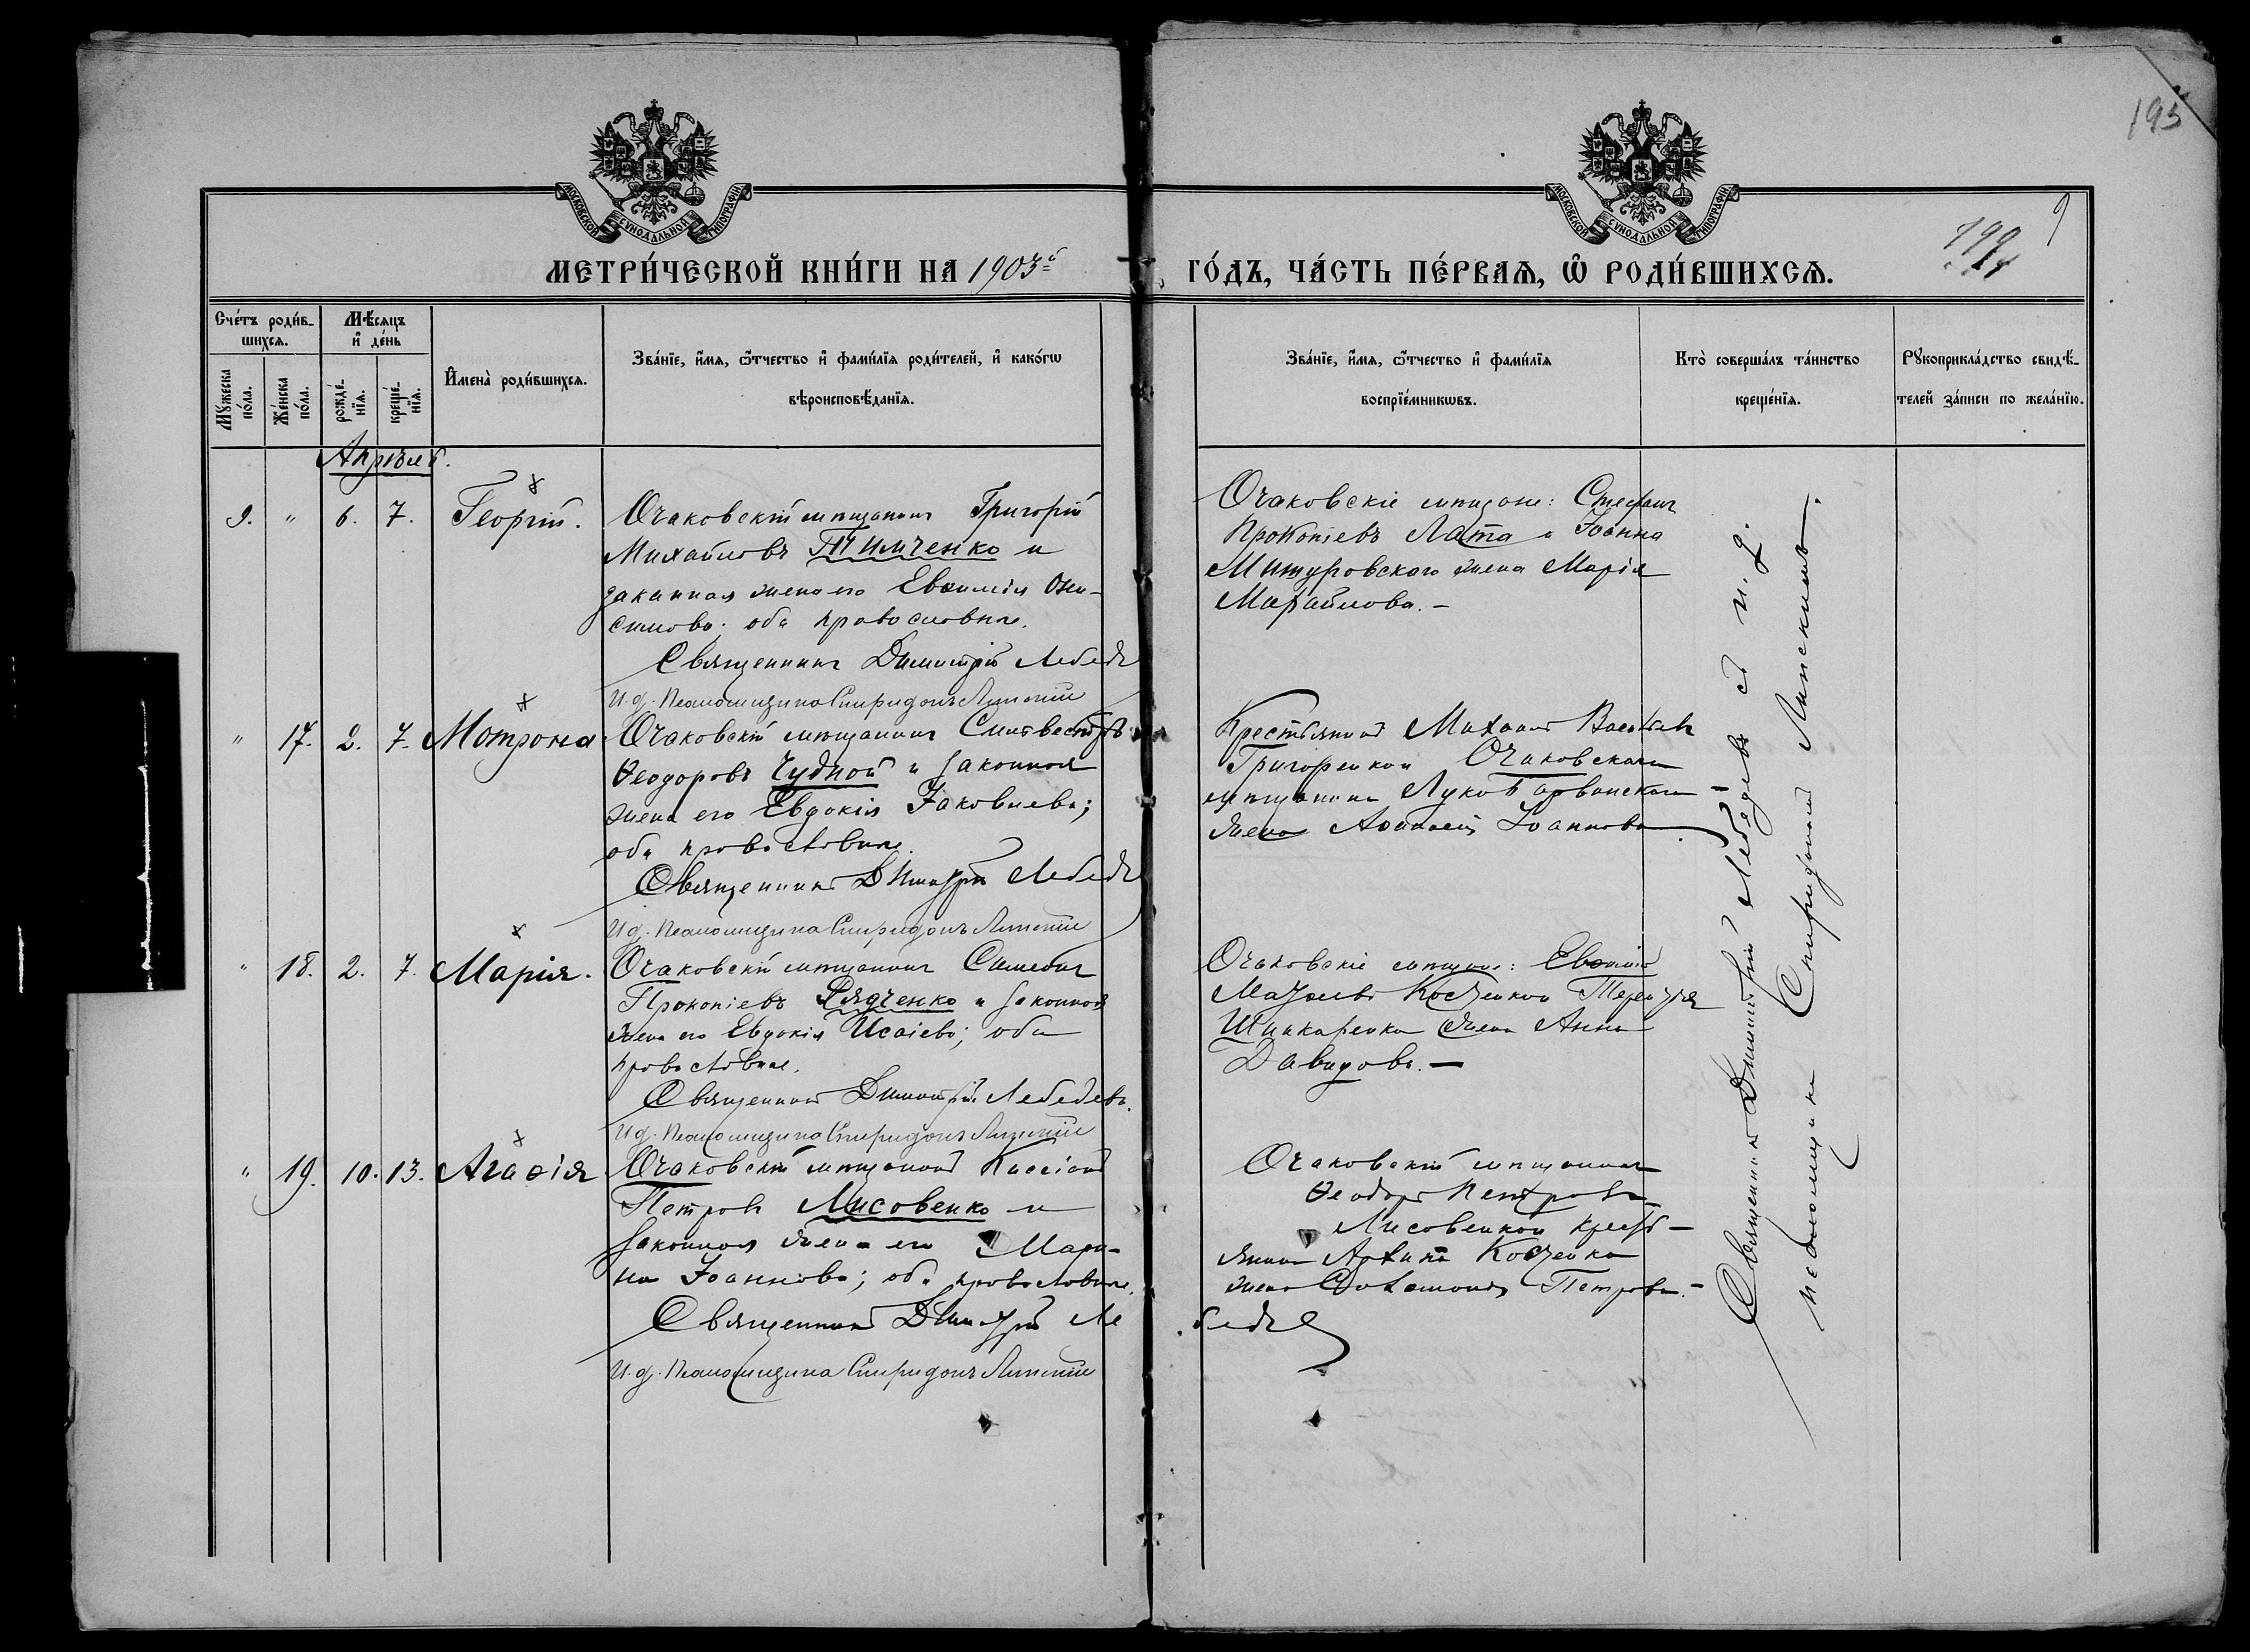 195
МОСКОВСКОЙ СѴНОДАЛЬНОЙ ТИПОГРАФІИ
МОСКОВСКОЙ СѴНОДАЛЬНОЙ ТИПОГРАФІИ
МЕТРИ́ЧЕСКОЙ КНИ́ГИ НА 1903й
ГО́ДЪ, ЧА́СТЬ ПЕ́РВАѦ, Ѿ РОДИ́ВШИХСѦ.
Сче́тъ роди́в-
шихсѧ.
Мѣ́сѧцъ
и҆ де́нь
Мꙋ́жеска
по́ла.
Же́нска
по́ла.
рожде́-
нїѧ.
креще́-
нїѧ.
И҆мена̀ роди́вшихсѧ.
Зва́нїе, и҆́мѧ, ѻ҆́тчество и҆ фами́лїѧ роди́телей, и҆ како́гѡ
вѣроисповѣ́данїѧ.
Зва́нїе, и҆́мѧ, ѻ҆́тчество и҆ фами́лїѧ
воспрїе́мникѡвъ.
Кто̀ соверша́лъ та́инство
креще́нїѧ.
Рꙋкоприкла́дство свидѣ́-
телей за́писи по жела́нїю.
Апрѣль.
9. " 6. 7. Георгій.
Очаковскій мѣщанинъ Григорій
Михайловъ Тимченко и
законная жена его Евѳимія Они-
симова; оба православные.
Священникъ Димитрій Лебедевъ
И. д. псаломщика Спиридонъ Липскій
Очаковскіе мѣщане: Стефанъ
Прокопіевъ Лата и Іоанна
Митуровскаго жена Марія
Михайлова. –
" 17. 2. 7. Мотрона
Очаковскій мѣщанинъ Сильвестръ
Ѳеодоровъ Чудной и законная
жена его Евдокія Іаковлева;
оба православные.
Священникъ Димитрій Лебедевъ
И. д. псаломщика Спиридонъ Липскій
Крестьянинъ Михаилъ Васильевъ
Григоренко и Очаковскаго
мѣщанина Луки
жена Іоаннова
" 18. 2. 7. Марія.
Очаковскій мѣщанинъ
Прокопіевъ Дядченко и законная
жена его Евдокія Исаіева; оба
православные.
Священникъ Димитрій Лебедевъ.
И. д. псаломщика Спиридонъ Липскій
Очаковскіе мѣщане: Евѳимій
Костенко и Терентія
Шинкаренка жена Анна
Давидова. –
" 19. 10. 13. Агаѳія
Очаковскій мѣщанинъ Кассіанъ
Петровъ Лисовенко и
законная жена его Мари-
на Іоаннова; оба православные.
Священникъ Димитрій Ле
бедевъ
И. д. псаломщика Спиридонъ Липскій
Очаковскій мѣщанинъ
Ѳеодоръ Петровъ
Лисовенко и крест-
янина Архипа Костенка
жена Соломонія Петрова. –
Священникъ Димитрій Лебедевъ съ и. д.
псаломщика Спиридономъ Липскимъ.